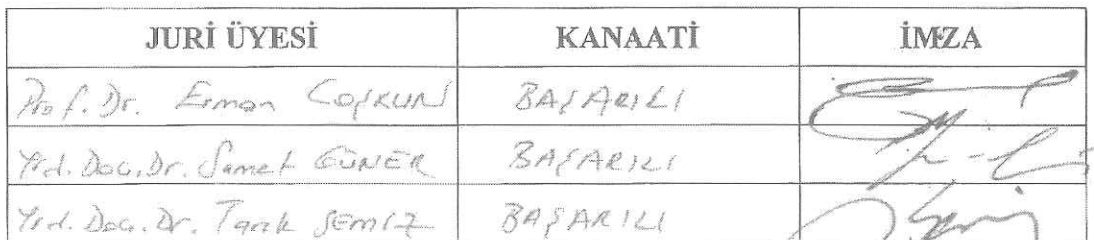 JURİ ÜYESİ KANAATİ İMZA
Prof. Dr. Erman COŞKUN BAŞARILI
Yrd. Doç. Dr. Samet GÜNER BAŞARILI
Yrd. Doç. Dr. Tarık SEMİZ BAŞARILI